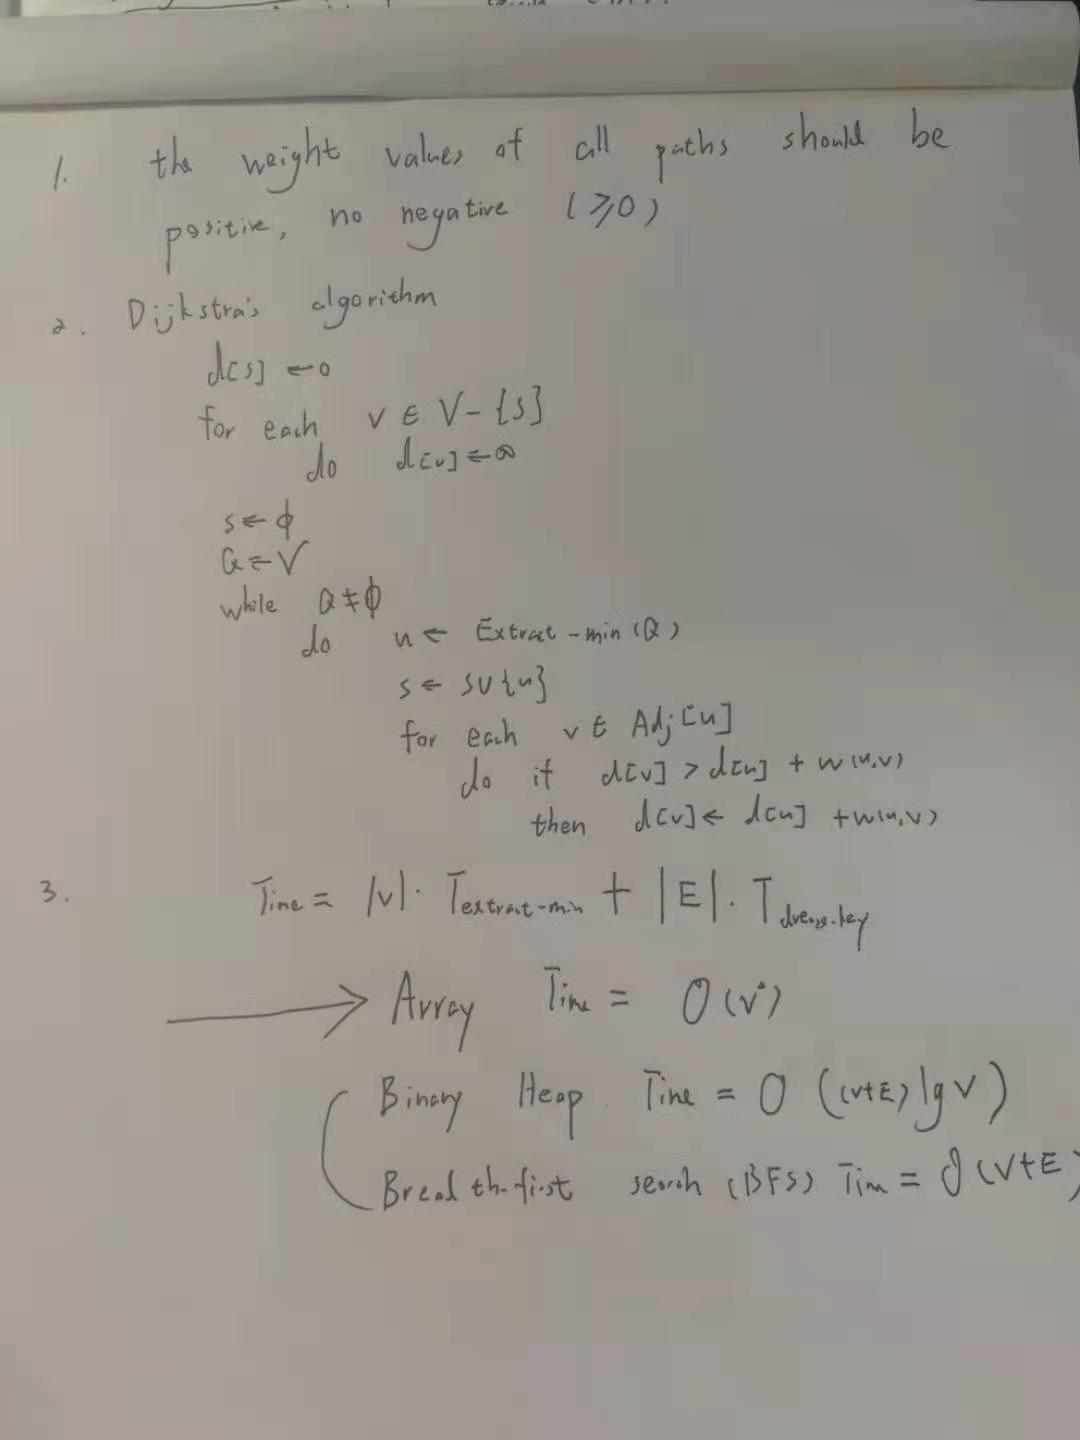 1. the weight values of all paths should be
positive, no negative (≥0)
2. Dijkstra's algorithm
d[s] ← 0
for each v ∈ V-{s}
do d[v] ← ∞
s ← ϕ
Q ← V
while Q ≠ ϕ
do u ← Extrat-min(Q)
s ← s∪{u}
for each v ∈ Adj[u]
do if d[v] > d[u] + w(u,v)
then d[v] ← d[u] + w(u,v)
3. Time = |V|· Textrat-min + |E|· T
→ Array Time = O(V²)
Binary Heap Time = O((V+E)lgV)
Breadth-first search (BFS) Time = O(V+E)